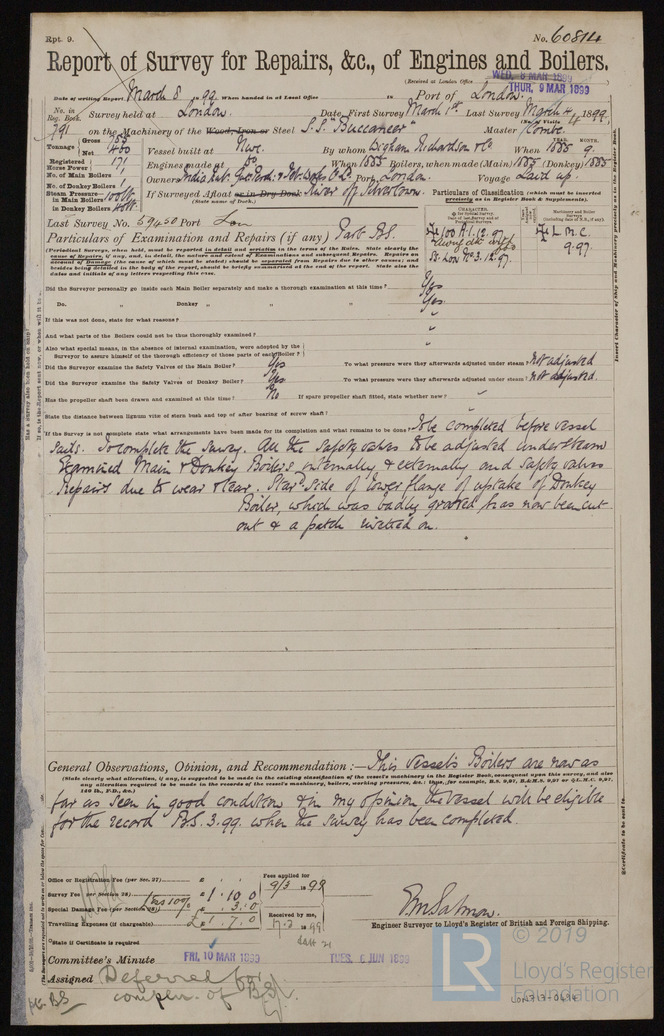 Rpt. 9.
No. 60814
Report of Survey for Repairs, &c., of Engines and Boilers.
(Received at London Office
WED. 8 MAR 1899
THUR. 9 MAR 1899
Date of writing Report March 8 1899 When handed in at Local Office 18 Port of London.
No. in Reg. Book. Survey held at London. Date, First Survey March 1st Last Survey March 4 1899
791 on the Machinery of the Wood, Iron or Steel S.S. "Buccaneer" Master Combe.
Tonnage Gross 785 Net 400 Vessel built at Nwc. By whom Wigham Richardson & Co. When 1885 9
Registered Horse Power 171 Engines made at Do When 1885 Boilers, when made (Main) 1885 (Donkey) 1885
No. of Main Boilers 1 Owners India Rub. Gut. Perch. & Tel. Works Co Ld. Port London. Voyage Laid up.
No. of Donkey Boilers 1
Steam Pressure in Main Boilers 100 lb.
in Donkey Boilers
If Surveyed Afloat or in Dry Dock River off Silvertown.
(State name of Dock.)
Particulars of Classification (which must be inserted precisely as in Register Book & Supplements).
Last Survey No. 59450 Port Lon
Particulars of Examination and Repairs (if any) Part B.S.
100 A.1. 12.97
SS. Lon No 3. 12.97.
L.M.C. 9.97.
Did the Surveyor personally go inside each Main Boiler separately and make a thorough examination at this time? Yes
Do. " Donkey " " " Yes.
If this was not done, state for what reasons? "
And what parts of the Boilers could not be thoroughly examined? "
Also what special means, in the absence of internal examination, were adopted by the
Surveyor to assure himself of the thorough efficiency of those parts of each Boiler? "
Did the Surveyor examine the Safety Valves of the Main Boiler? Yes To what pressure were they afterwards adjusted under steam? not adjusted
Did the Surveyor examine the Safety Valves of Donkey Boiler? Yes To what pressure were they afterwards adjusted under steam? not adjusted.
Has the propeller shaft been drawn and examined at this time? No If spare propeller shaft fitted, state whether new? "
State the distance between lignum vitæ of stern bush and top of after bearing of screw shaft? "
If the Survey is not complete state what arrangements have been made for its completion and what remains to be done. To be completed before vessel
sails. To complete the survey. All the safety valves to be adjusted under steam
Examined Main & Donkey Boilers internally & externally and safety valves
Repairs due to wear & tear. Starbd side of lower flange of uptake of Donkey
Boiler, which was badly grooved has now been cut
out & a patch rivetted on.
General Observations, Opinion, and Recommendation :— This vessel's Boilers are now as
(State clearly what alteration, if any, is suggested to be made in the existing classification of the vessel's machinery in the Register Book, consequent upon this survey, and also
far as seen in good condition & in my opinion the vessel will be eligible
for the record B.S. 3.99. when the survey has been completed
Office or Registration Fee (per Sec. 27) £
Survey Fee (per Section 28) less 10% £ 1.10.0
Special Damage Fee (per Section 28) £ .3.0
Travelling Expenses (if chargeable) £ 1.7.0
Fees applied for
9/3 1899
Received by me,
E.M. Salmon.
Engineer Surveyor to Lloyd's Register of British and Foreign Shipping.
State if Certificate is required
Committee's Minute FRI. 10 MAR 1899 TUES. 6 JUN 1899
Assigned Deferred for
complen. of B.S.
© 2019
LR
Lloyd's Register
Foundation
LON717-0494